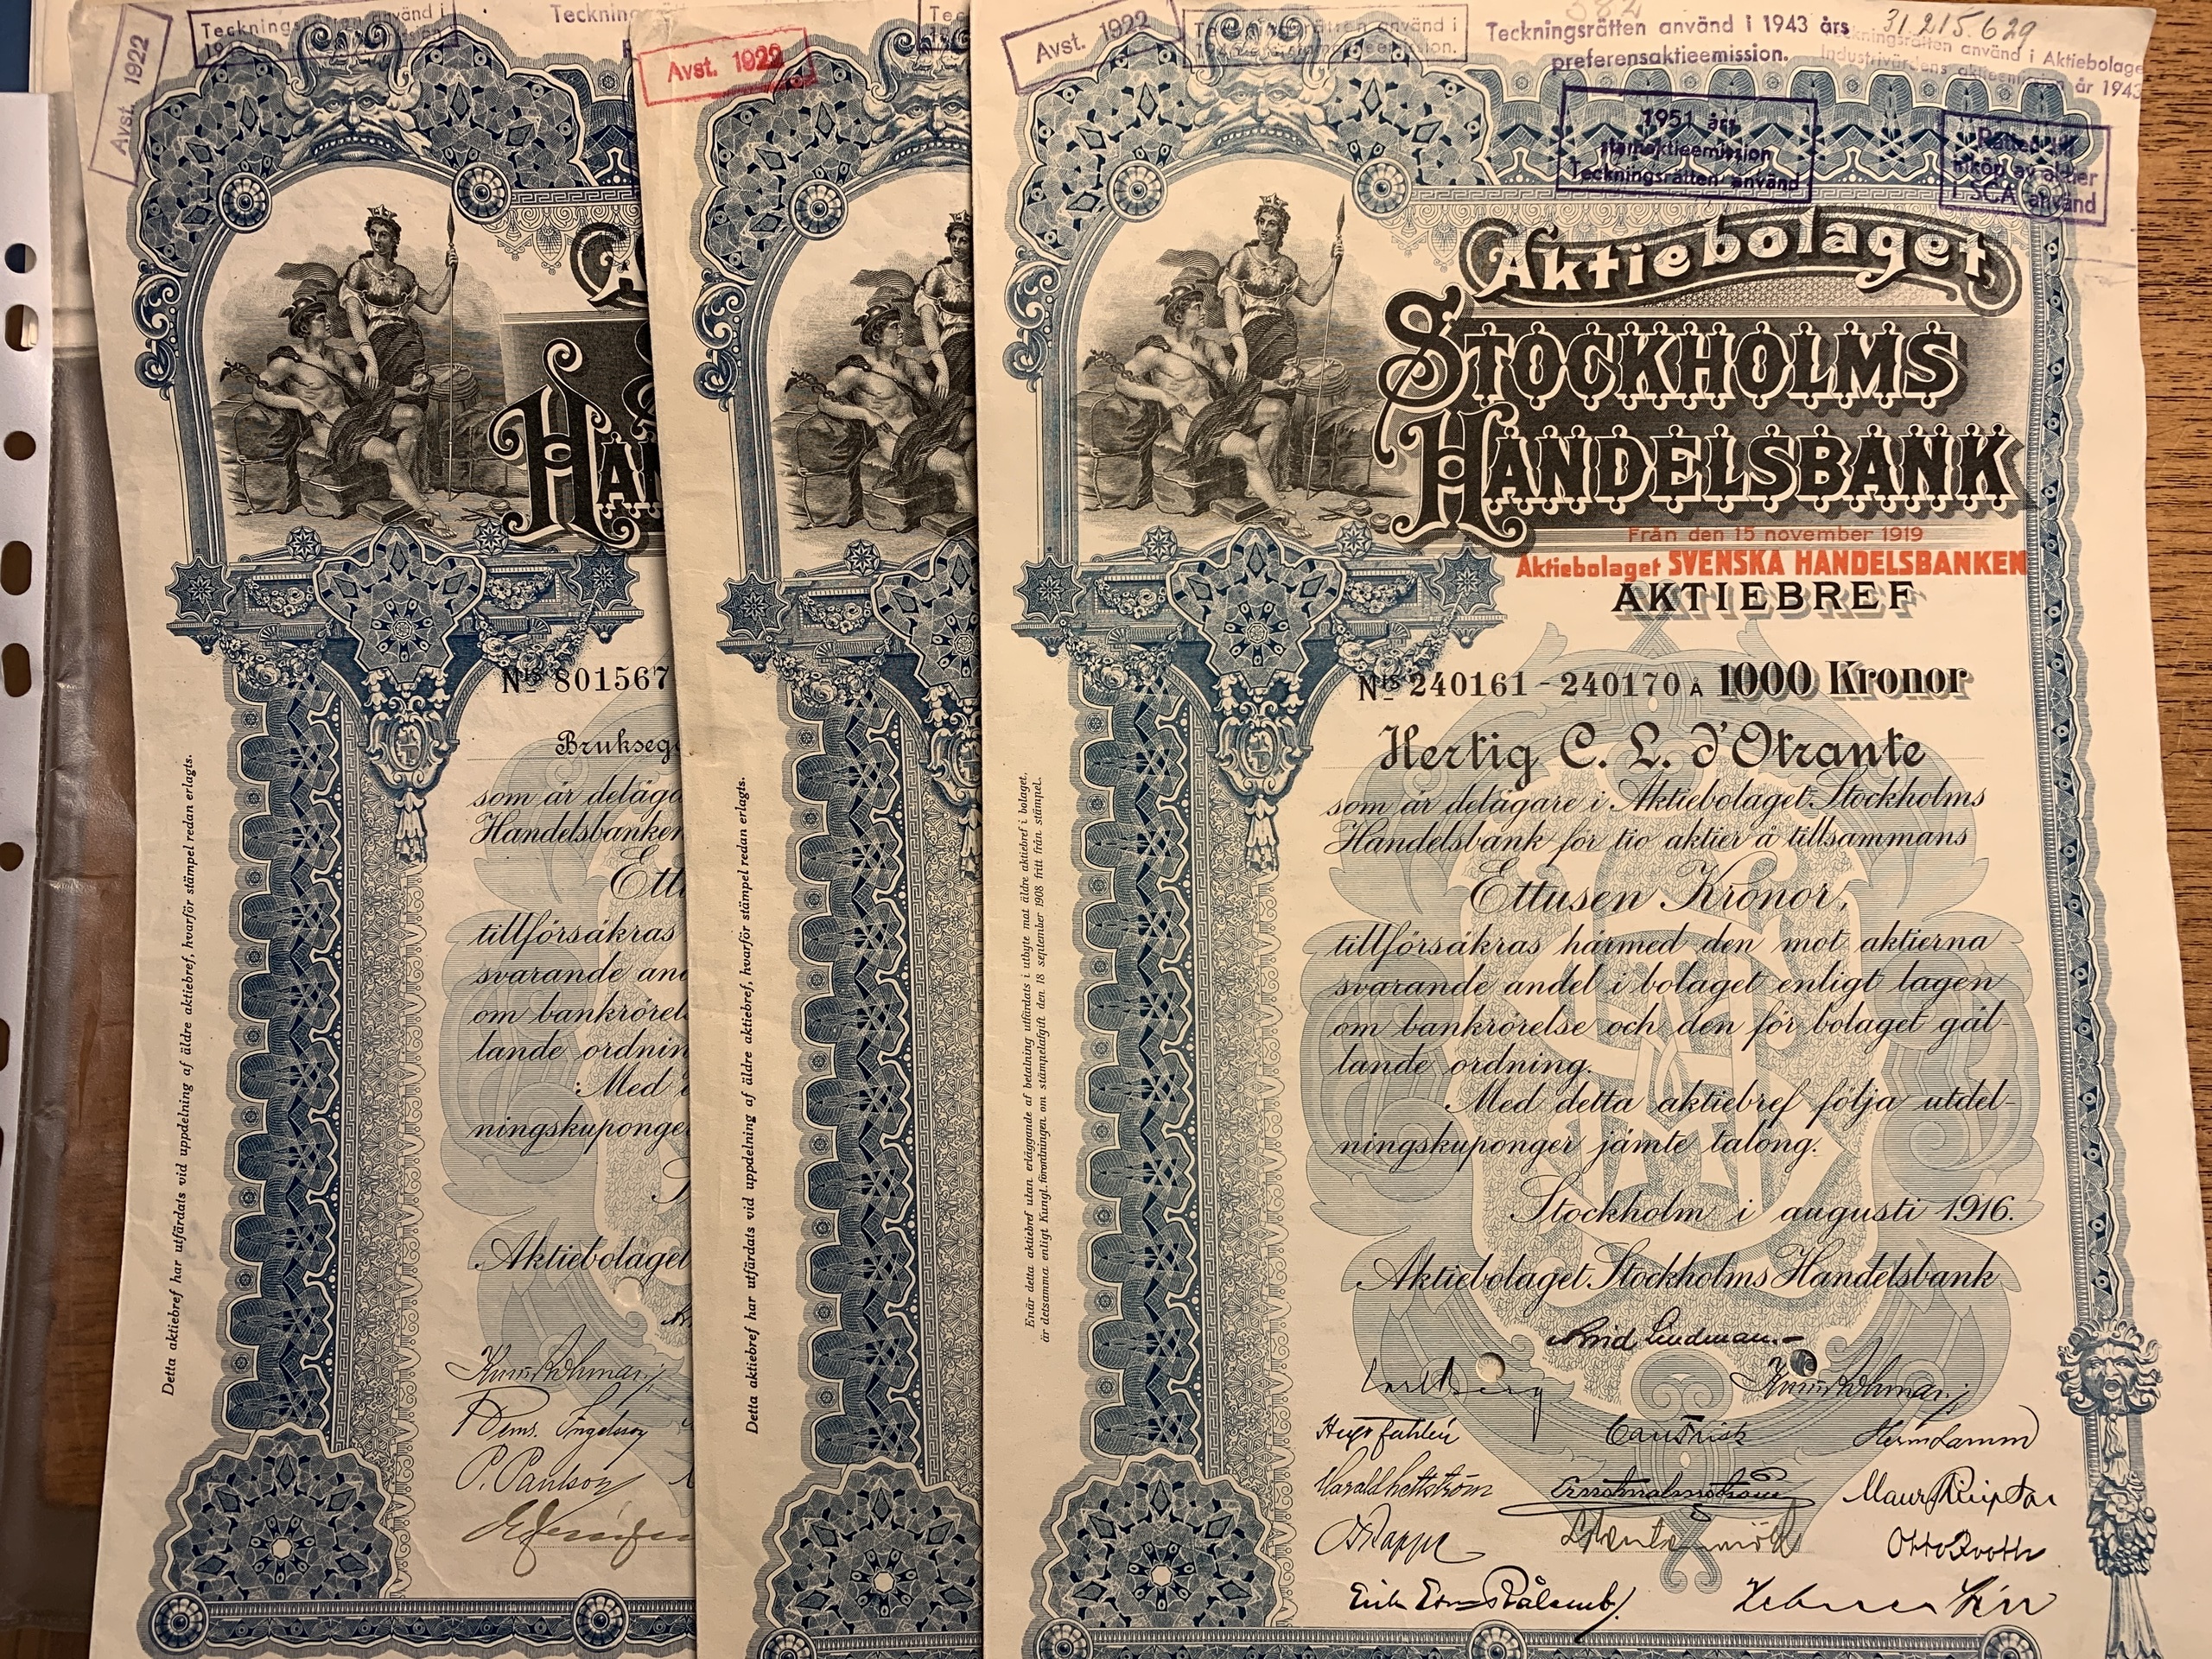 Avst. 1922
Teckningsrätten använd i
Teckning
Nis 801567
Brukseg
som är deläga
Handelsbanken
Ett
tillförsäkras
svarande and
om bankrörels
lande ordnin
Med d
ningskuponger
Aktiebolaget
Knut Dahlman
P. Paulson
Detta aktiebref har utfärdats vid uppdelning af äldre aktiebref, hvarför stämpel redan erlagts.
Avst. 1922
Detta aktiebref har utfärdats vid uppdelning af äldre aktiebref, hvarför stämpel redan erlagts.
Avst. 1922
Teckningsrätten använd i
Teckningsrätten använd i 1943 års
preferensaktieemission.
31.215.629
Teckningsrätten använd i Aktiebolage
Industrivärdens aktieemission år 1943
1951 års
stamaktieemission
Teckningsrätten använd
Rätten till
inköp av aktier
i SCA använd
Aktiebolaget
STOCKHOLMS
HANDELSBANK
Från den 15 november 1919
Aktiebolaget SVENSKA HANDELSBANKEN
AKTIEBREF
Nis 240161 - 240170 Å 1000 Kronor
Hertig C. L. d'Otrante
som är delägare i Aktiebolaget Stockholms
Handelsbank för tio aktier å tillsammans
Ettusen Kronor,
tillförsäkras härmed den mot aktierna
svarande andel i bolaget enligt lagen
om bankrörelse och den för bolaget gäl-
lande ordning.
Med detta aktiebref följa utdel-
ningskuponger jämte talong.
Stockholm i augusti 1916.
Aktiebolaget Stockholms Handelsbank
Arvid Lindman
Carl Frisk
Herm Lamm
Harald Hettström
Ernst Malmström
O Rappe
Otto Rooth
Erik Ernst Rålamb
Enär detta aktiebref utan erläggande af betalning utfärdats i utbyte mot äldre aktiebref i bolaget,
är detsamma enligt Kungl. förordningen om stämpelafgift den 18 september 1908 fritt från stämpel.